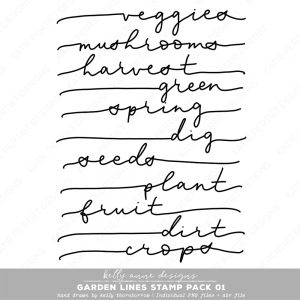 veggies
mushrooms
harvest
green
spring
dig
seeds
plant
fruit
dirt
crops
kelly anne designs
GARDEN LINES STAMP PACK 01
hand drawn by kelly thorntorrow | Individual PNG files + abr file